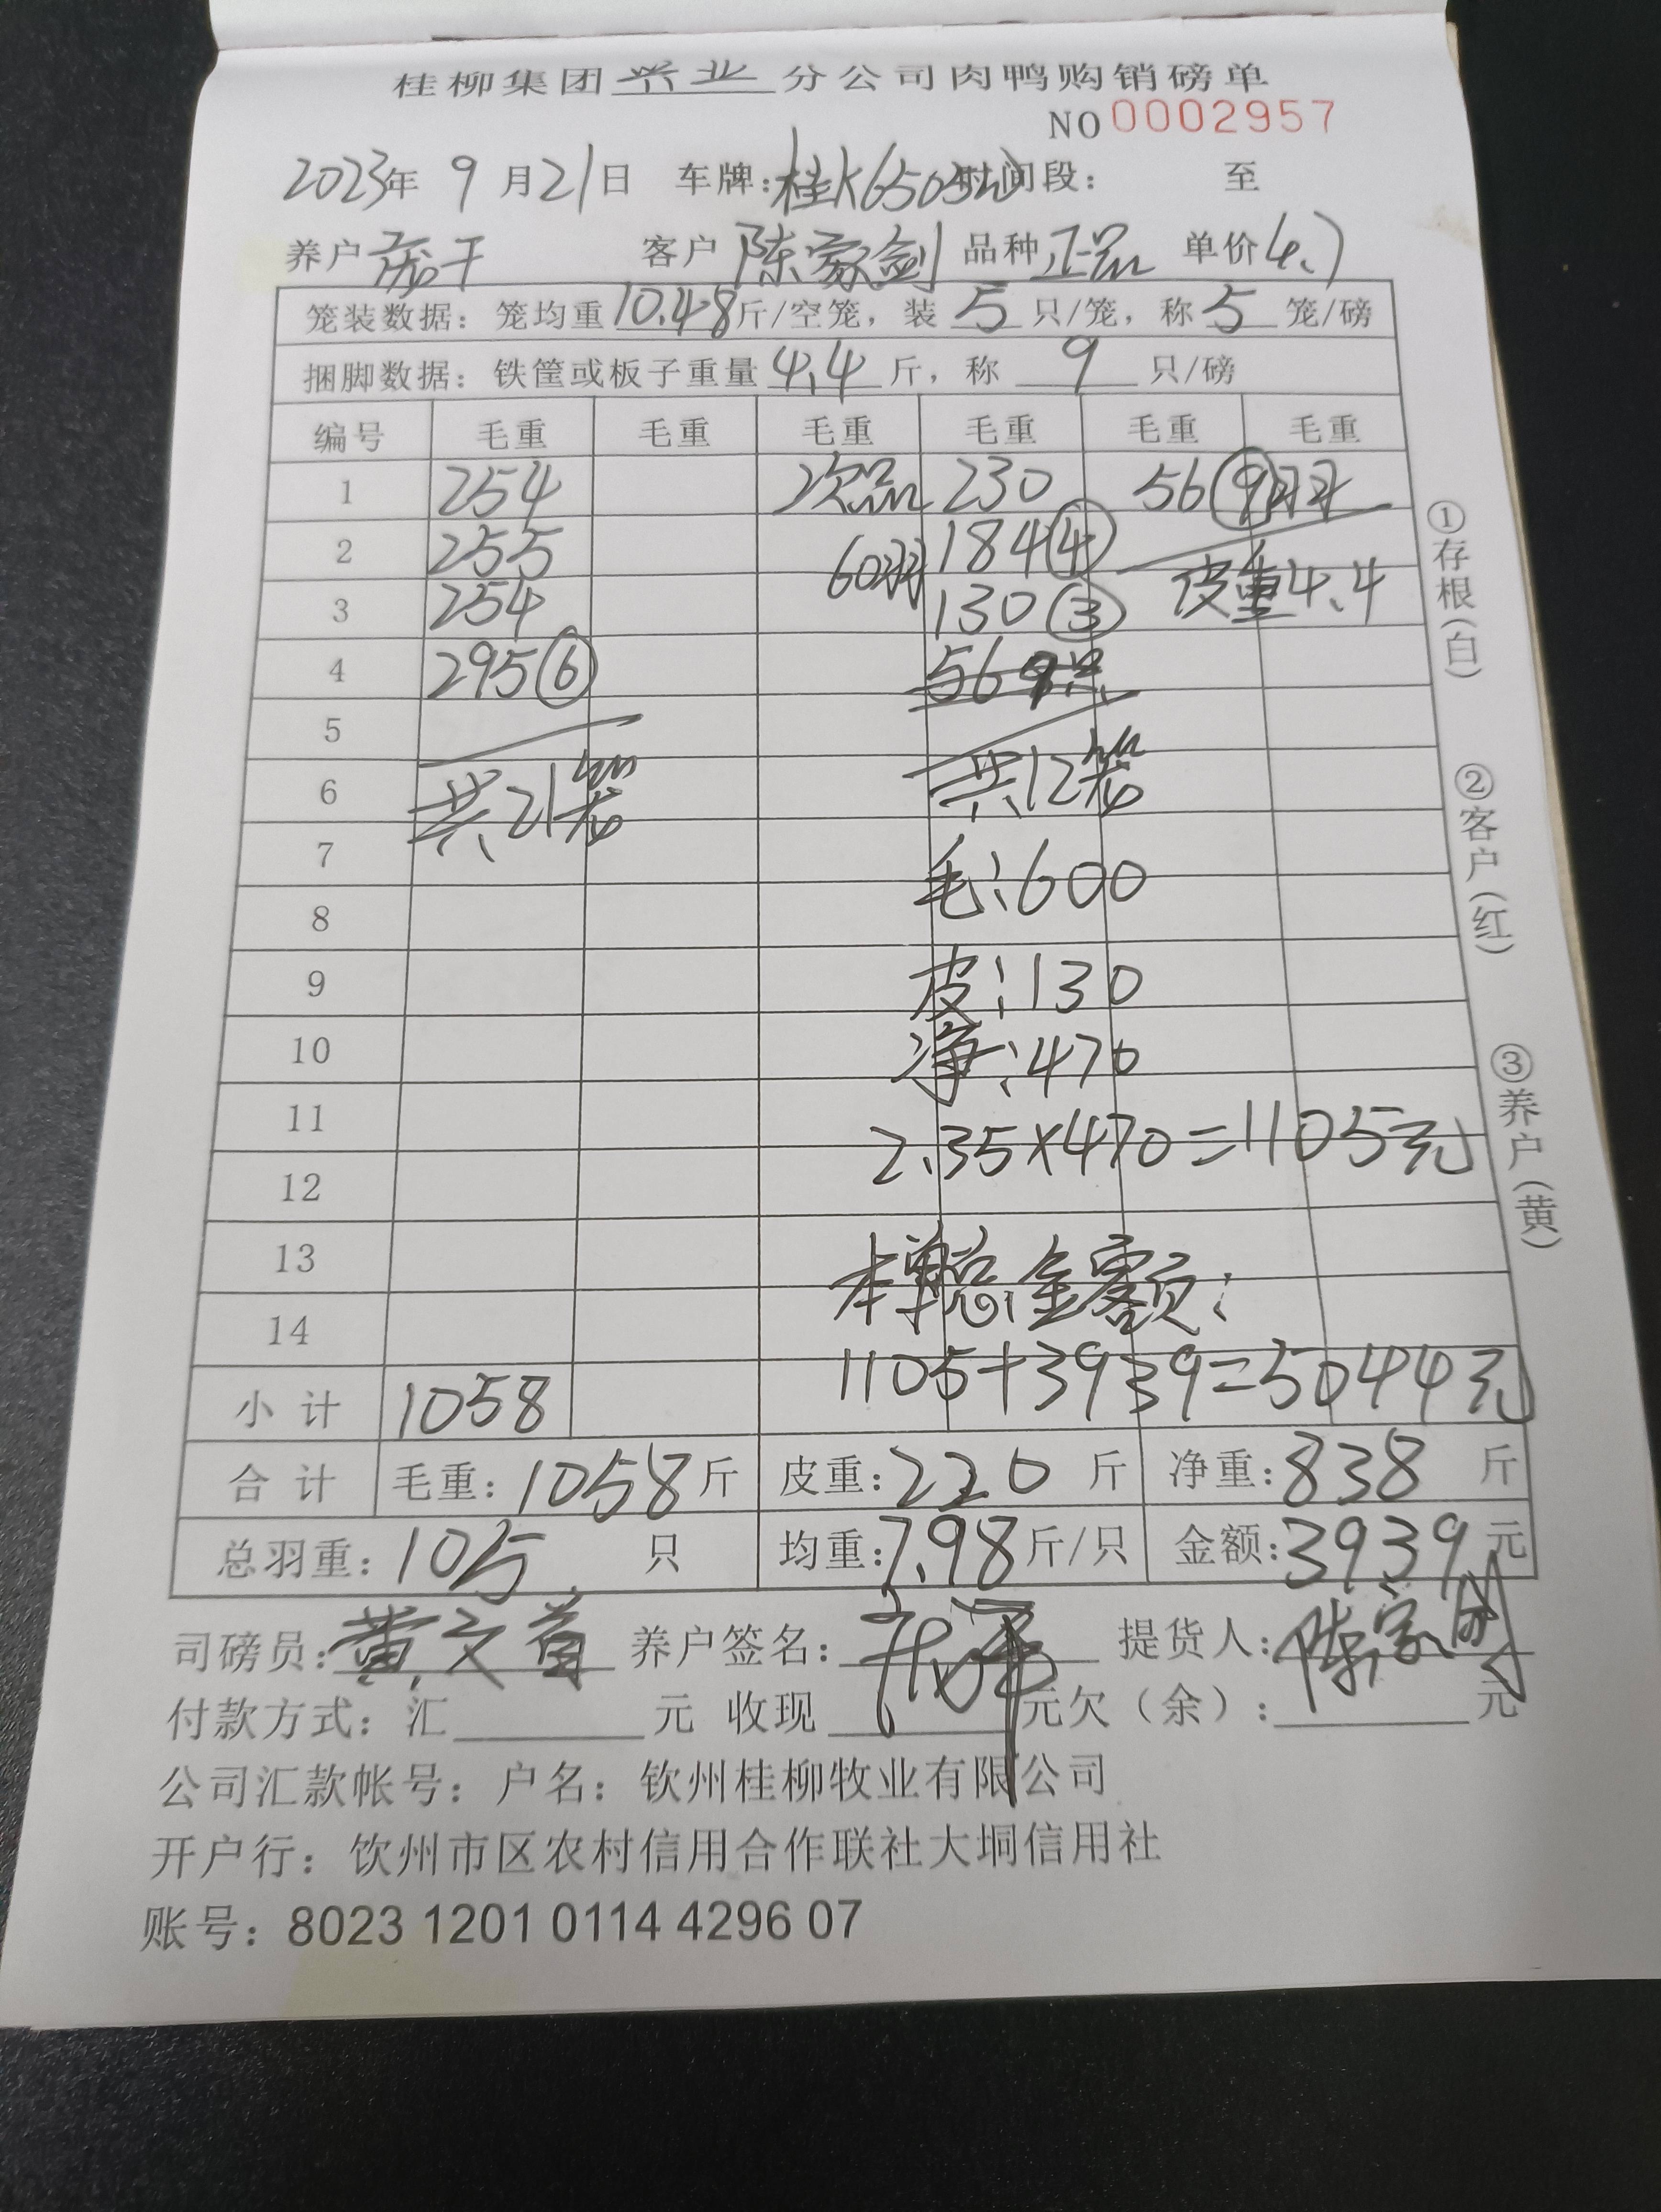 桂柳集团兴业分公司肉鸭购销磅单
NO 0002957
2023年 9月21日 车牌：桂K6505 时间段： 至
养户 庞干 客户 陈家剑 品种 正品 单价 4.7
笼装数据：笼均重10.48斤/空笼，装5只/笼，称5笼/磅
捆脚数据：铁筐或板子重量4.4斤，称9只/磅
编号 毛重 毛重 毛重 毛重 毛重 毛重
1 254 次品 230 56⑨羽
2 255 60羽 184④
3 254 130③ 皮重4.4
4 295⑥ 569
5
6 共21笼 共12笼
7 毛：600
8
9 皮：130
10 净：470
11 2.35×470=1105元
12
13 本单总金额：
14 1105+3939=5044元
小计 1058
合计 毛重：1058斤 皮重：220斤 净重：838斤
总羽重：105只 均重：7.98斤/只 金额：3939元
司磅员：黄文 养户签名： 提货人：陈家剑
付款方式：汇 元 收现 元欠（余）： 元
公司汇款帐号：户名：钦州桂柳牧业有限公司
开户行：钦州市区农村信用合作联社大垌信用社
账号：8023 1201 0114 4296 07
①存根（白）
②客户（红）
③养户（黄）